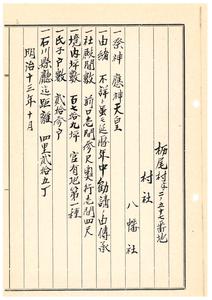 栃尾村字ニノ五十七番地
村社
八幡社
一祭神 應神天皇
一由緒 不詳ト雖モ延暦年中勧請ト由傳承
一社殿間数 前口壱間参尺奥行壱間四尺
一境内坪数 百七十九坪 官有地第一種
一氏子戸数 貳拾参戸
一石川縣廳迄距離 四里貳拾五丁
明治十三年十月